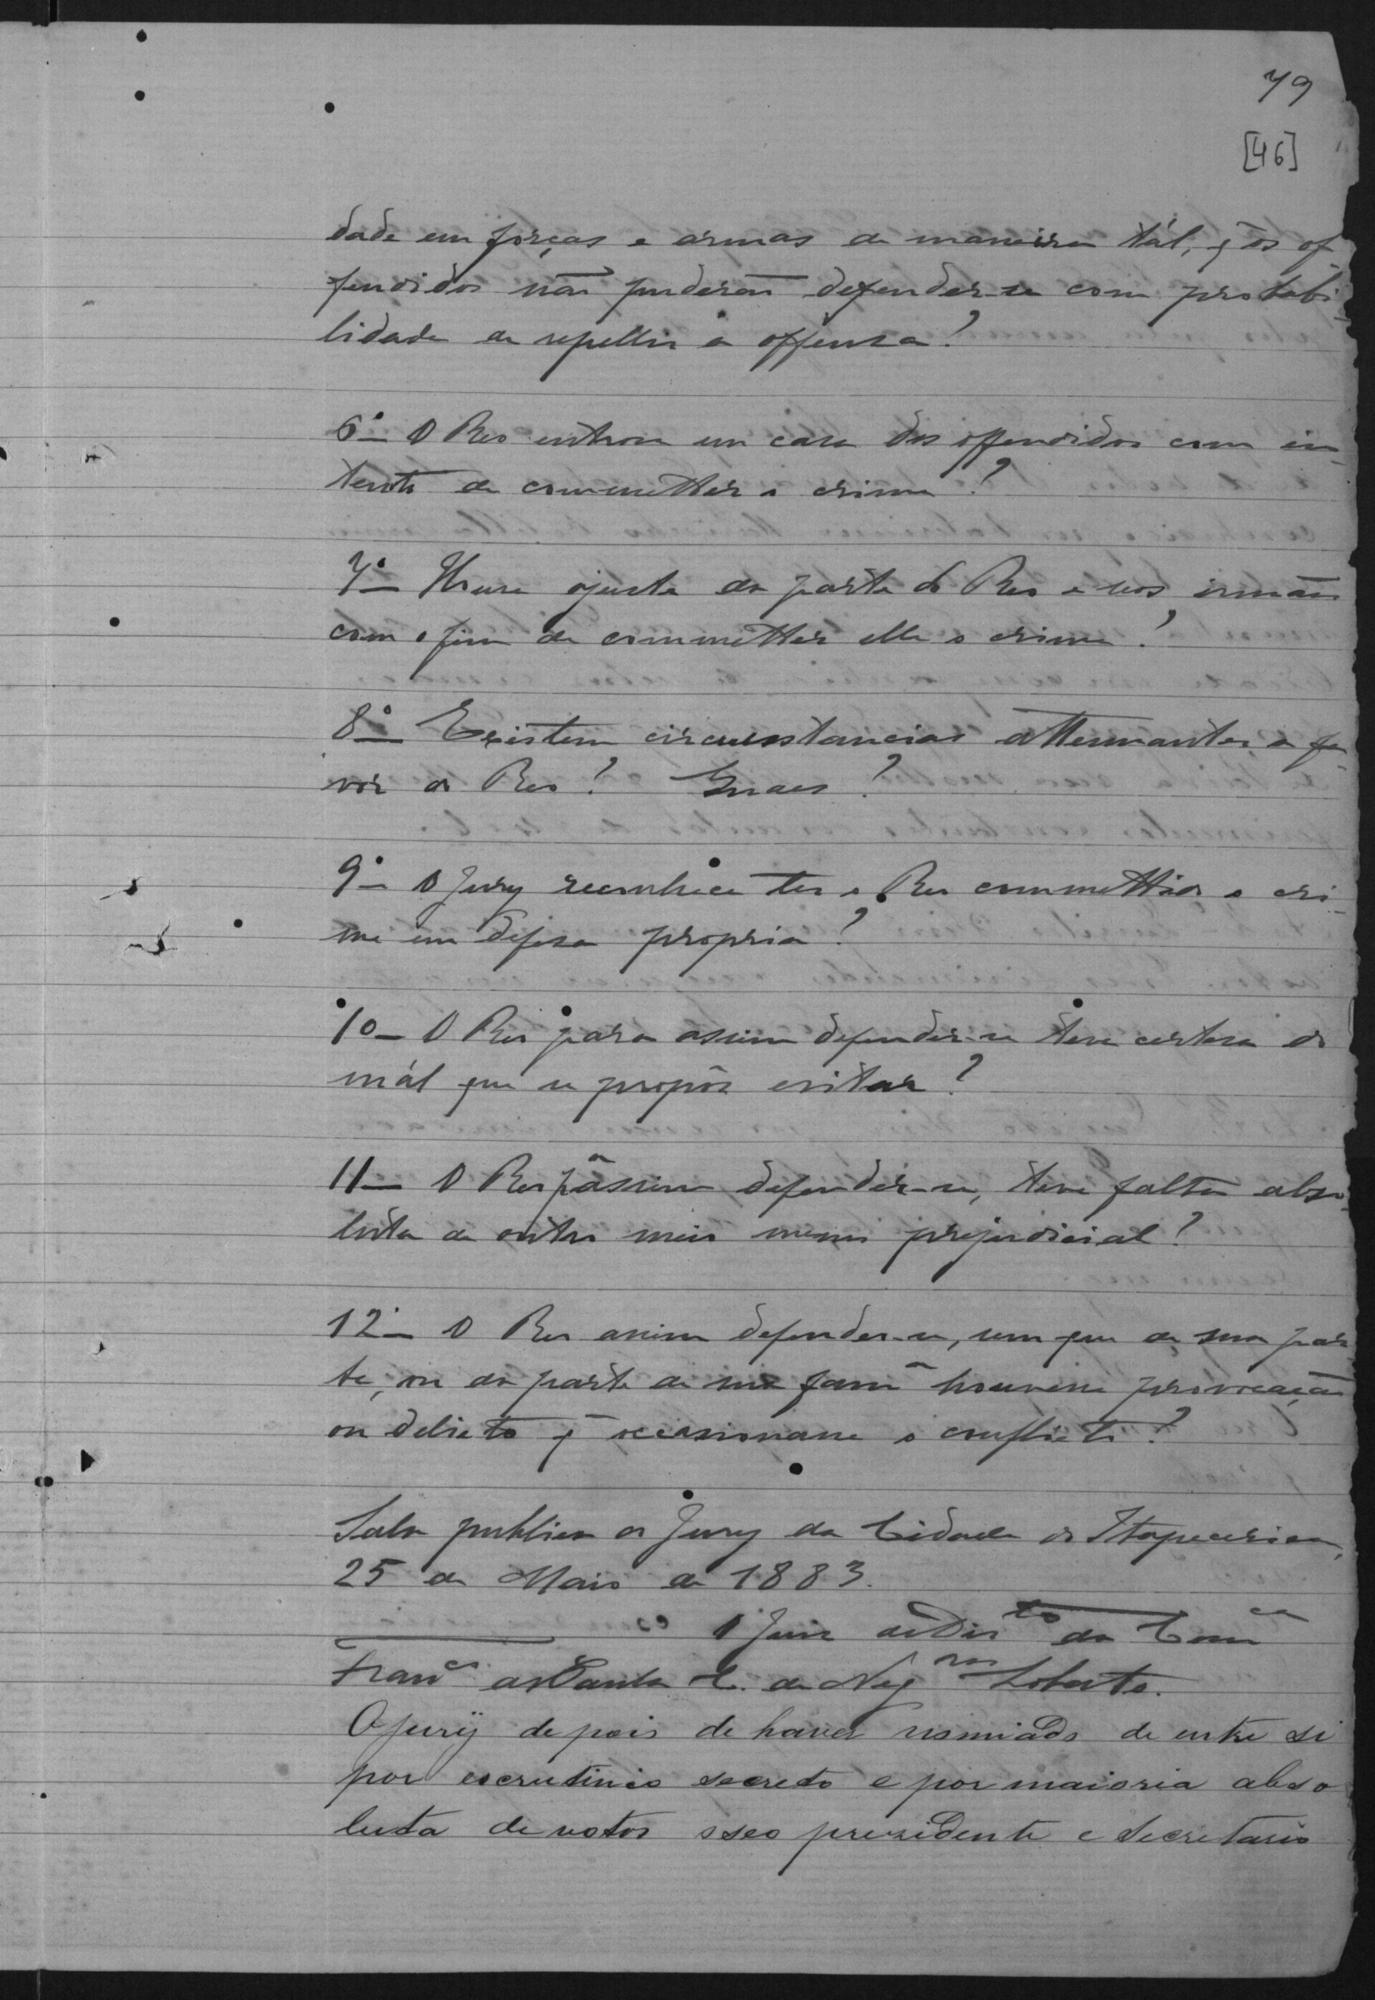 79
[46]
dade em forças e armas de maneira tál, q̃ os of-
fendidos não puderão defender-se com probabi-
lidade de repellir a offensa?
6º— O Reo entrou em casa dos offendidos com in-
tento de commetter o crime?
7º— Houve ajuste da parte do Reo e seos irmãos
com o fim de commetter elle o crime?
8º— Existem circumstancias attenuantes a fa-
vor do Reo? Quaes?
9º— O Jury reconhece ter o Reo commettido o cri-
me em defesa propria?
10— O Reo para assim defender-se teve certesa do
mál que se propôs evitar?
11— O Reo pª assim defender-se, teve falta abso-
luta de outro meio menos prejudicial?
12— O Reo assim defender-se, sem que de sua par-
te, ou da parte de sua famª houvesse provocação
ou delicto q̃ occasionasse o conflicto?
Sala publica do Jury da Cidade de Itapecerica,
25 de Maio de 1883.
O Juiz de Dirto da Comca
Franco de Paula C. de Negros Lobato.
O jury depois de haver nomiado de entre si
por escrutinio secreto e por maioria abso
luta de votos o seo prezidente e secretario